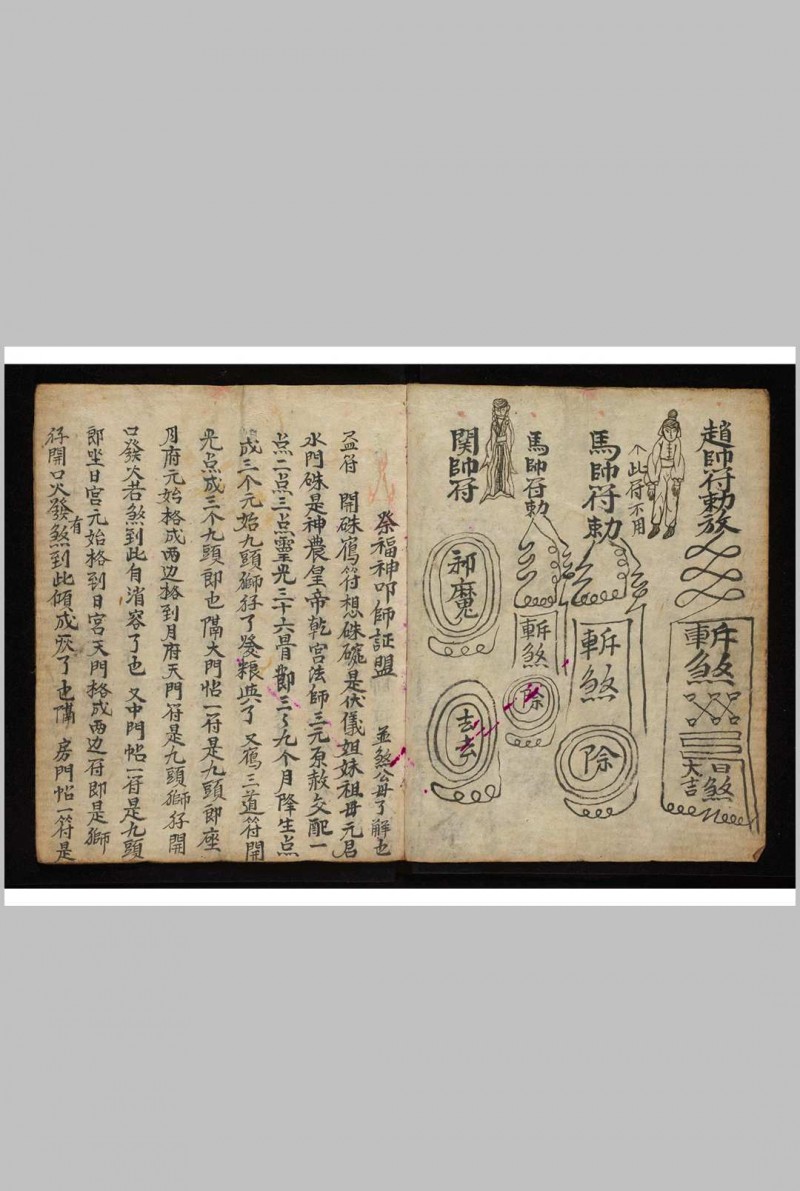 趙師符勅放
斬煞
日煞
大吉
此符不用
馬師符勅
斬煞
除
馬師符勅
斬煞
除
関帥符
邪魔
去去
祭福神叩師証盟 並煞公母了解也
符 開硃窩符想硃碗是伏儀姐妹祖母元君
水門硃是神農皇帝乾宮法師三元原赦文配一
点二点三点靈光三十六骨節三三九个月降生点
成三个元始九頭獅仔了發粮與了 又窩三道符開
光点成三个九頭即也 隔大門帖一符是九頭即座
月府元始格成两边格到月府天門符是九頭獅仔開
口發火若煞到此自消容了也 又中門帖一符是九頭
即坐日宮元始格到日宮天門格成两边符即是獅
仔開口火發有煞到此傾成灰了也隔 房門帖一符是